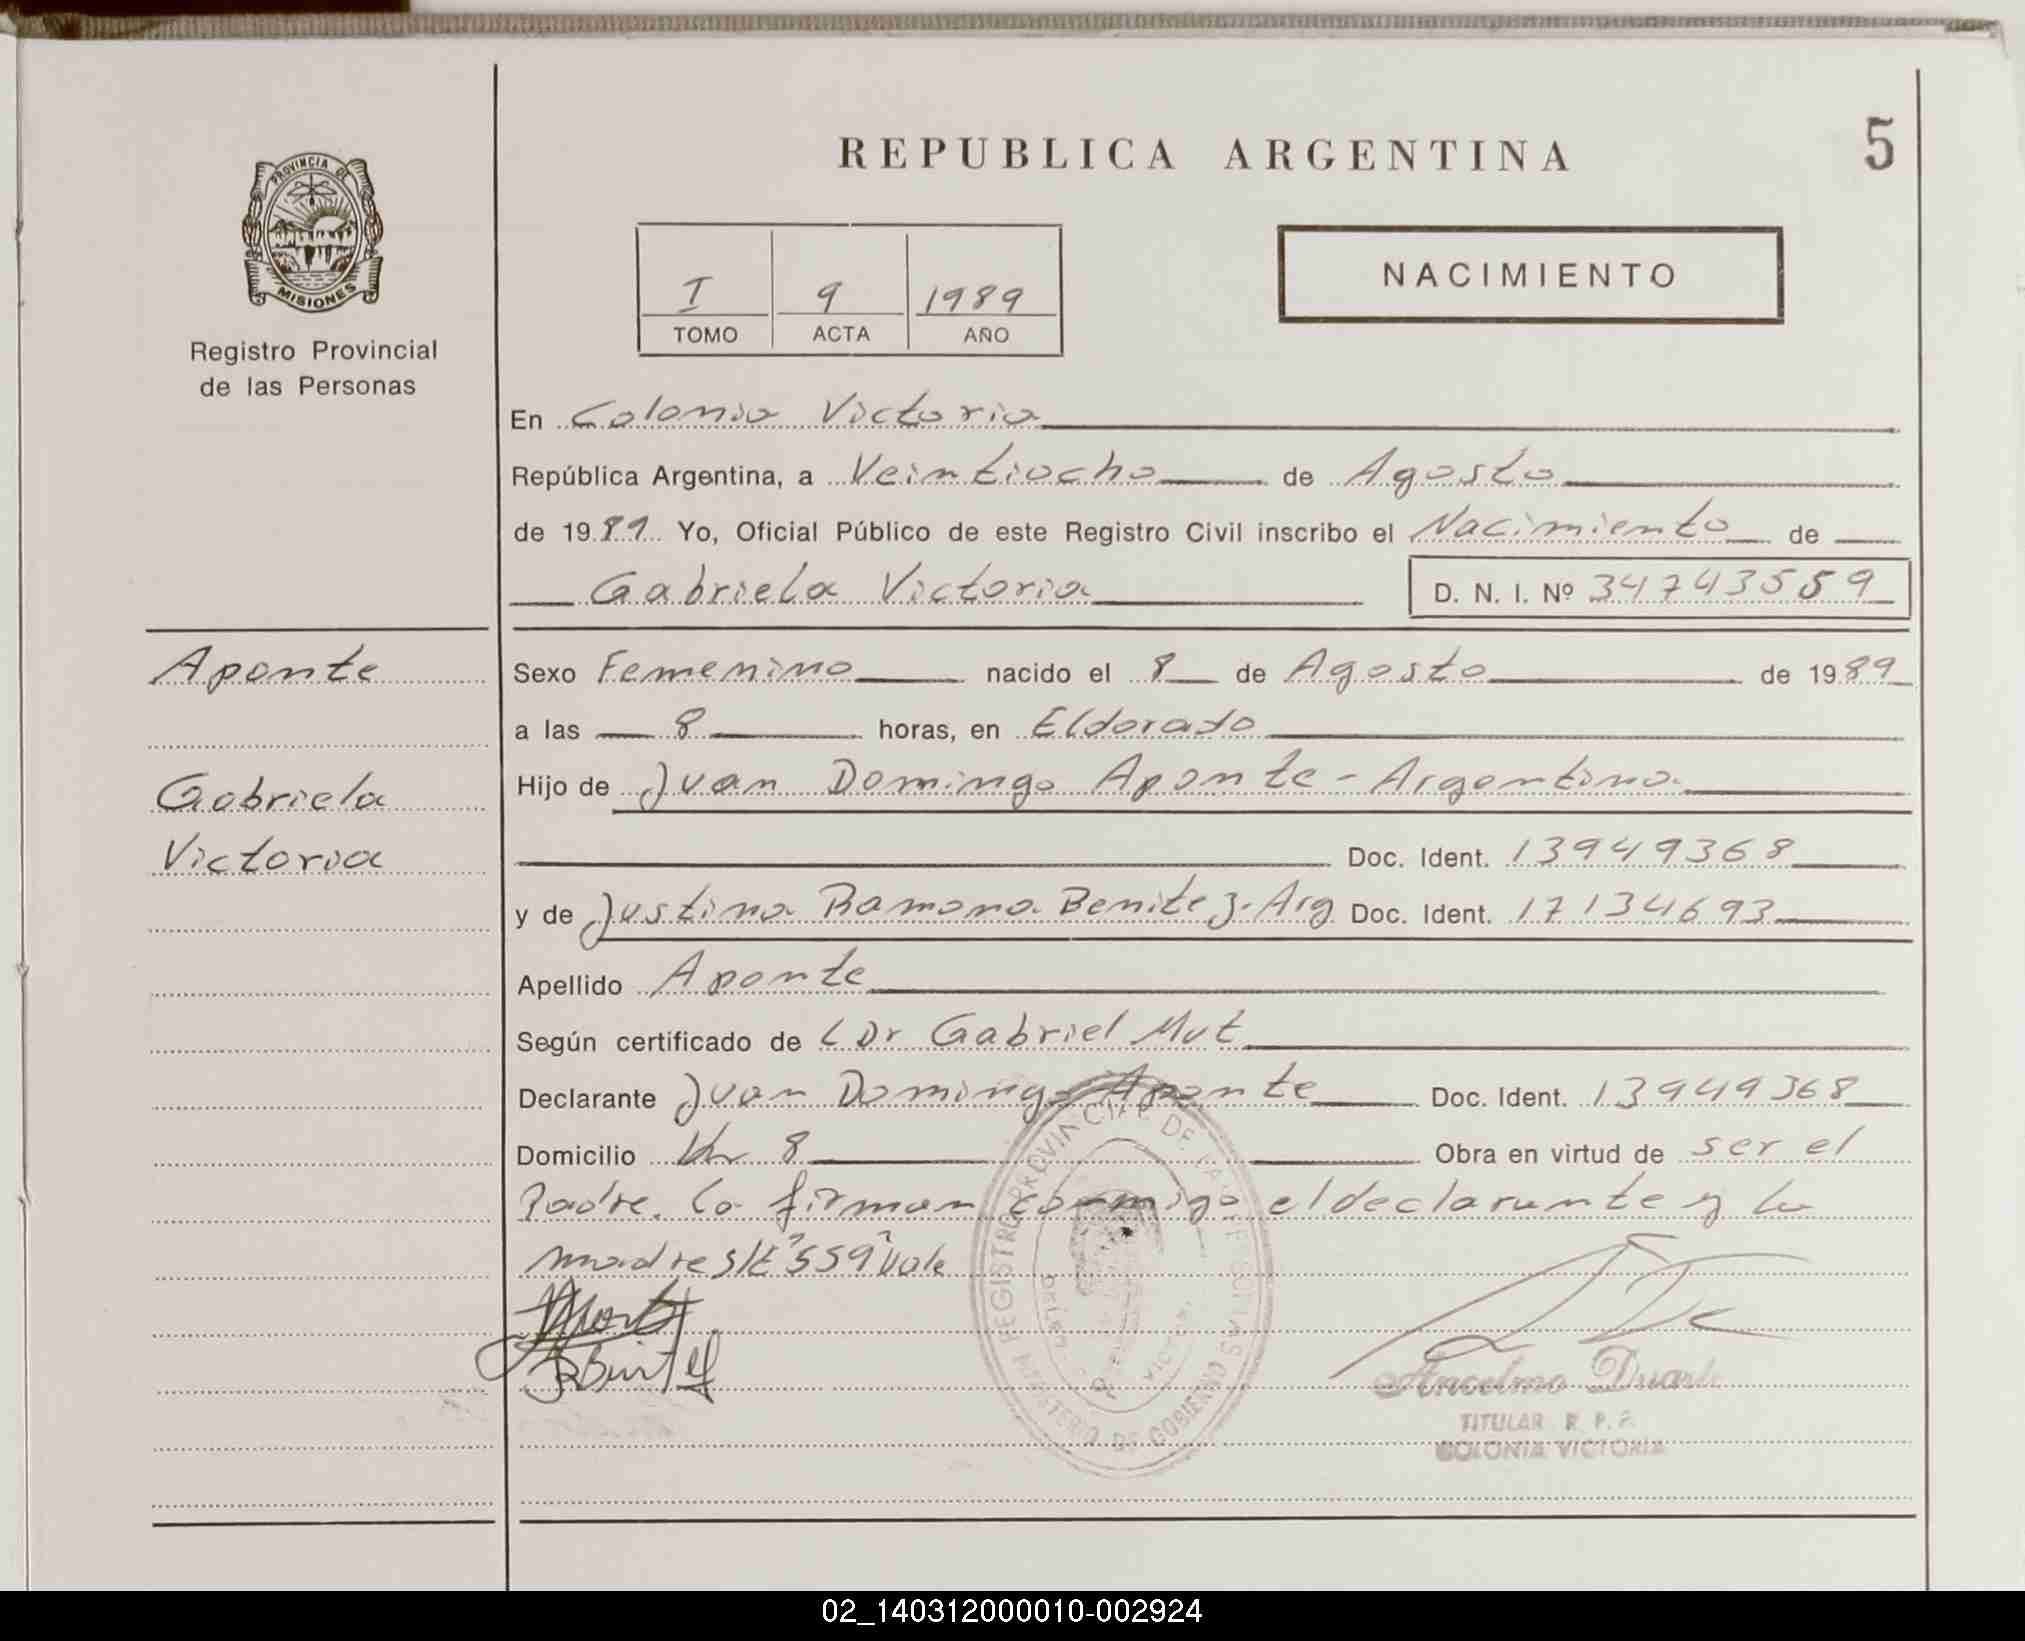 REPUBLICA ARGENTINA
5
PROVINCIA DE
MISIONES
Registro Provincial
de las Personas
I 9 1989
TOMO ACTA AÑO
NACIMIENTO
En Colonia Victoria
República Argentina, a Veintiocho de Agosto
de 1989 Yo, Oficial Público de este Registro Civil inscribo el Nacimiento de
Gabriela Victoria D. N. I. Nº 34743559
Aponte
Gabriela
Victoria
Sexo Femenino nacido el 8 de Agosto de 1989
a las 8 horas, en Eldorado
Hijo de Juan Domingo Aponte - Argentino
Doc. Ident. 13949368
y de Justina Ramona Benitez - Arg Doc. Ident. 17134693
Apellido Aponte
Según certificado de Dr Gabriel Mut
Declarante Juan Domingo Aponte Doc. Ident. 13949368
Domicilio Km 8 Obra en virtud de ser el
Padre. La firman conmigo el declarante y la
madre S/E "559" Vale
REGISTRO PROVINCIAL DE LAS PERSONAS
MINISTERIO DE GOBIERNO
Ancelmo Duarte
TITULAR R. P. P.
COLONIA VICTORIA
02_140312000010-002924